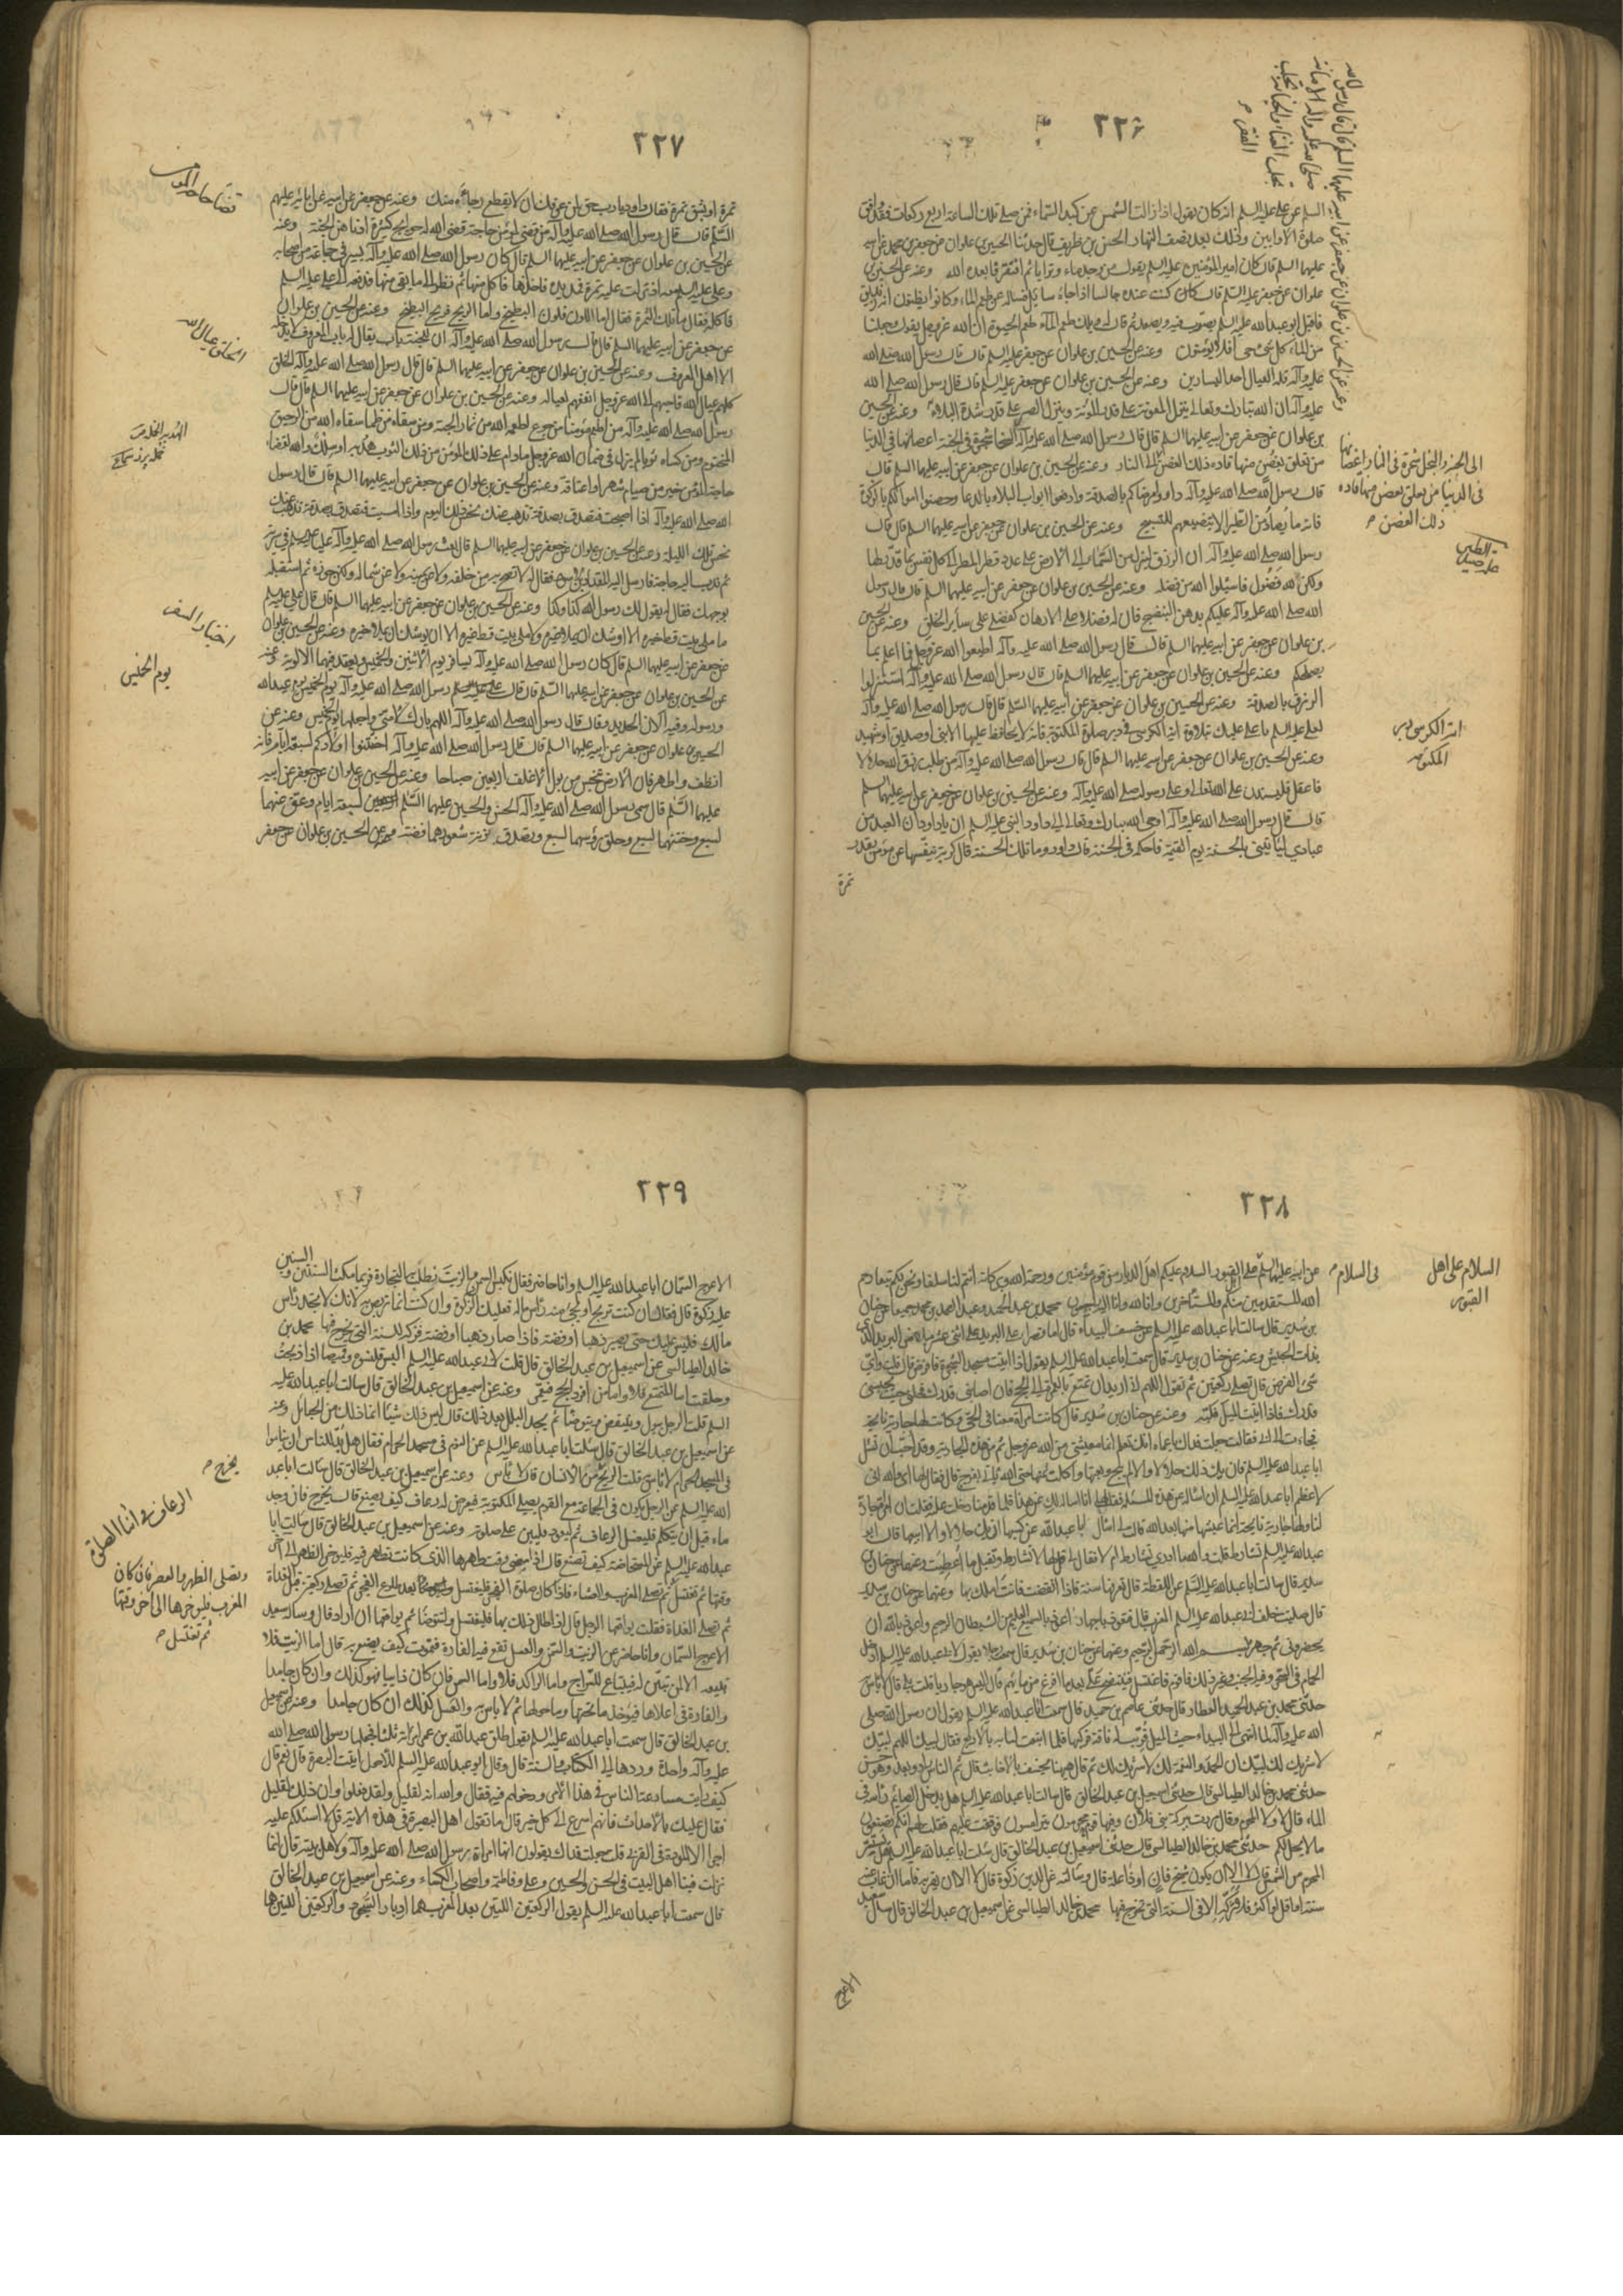 ٢٢٦
وعنه عن الحسين بن علوان عن جعفر عن ابيه عليهما السلم قال قال رسول الله
صلى الله عليه وآله الامانة تجلب الغناء والخيانة تجلب
الفقر
السلم عن علي عليه السلم انه كان يقول اذا زالت الشمس عن كبد السماء فمن صلى تلك الساعة اربع ركعات فقد وافق
صلوة الاوابين وذلك بعد نصف النهار الحسن بن ظريف قال حدثنا الحسين بن علوان عن جعفر بن محمد عن ابيه
عليهما السلم قال كان امير المؤمنين عليه السلم يقول من وجد ماء وترابا ثم افتقر فابعده الله وعنه عن الحسين بن
علوان عن جعفر عليه السلم قال كنت عنده جالسا اذ جاءه سائل فساله عن طعم الماء وكانوا يظنون انه زنديق
فاقبل ابو عبد الله عليه السلم يصوب فيه ويصعد ثم قال له ويلك طعم الماء طعم الحيوة ان الله عز وجل يقول وجعلنا
من الماء كل شئ حي افلا يؤمنون وعنه عن الحسين بن علوان عن جعفر عليه السلم قال قال رسول الله صلى الله
عليه وآله قلة العيال احد اليسارين وعنه عن الحسين بن علوان عن جعفر عليه السلم قال قال رسول الله صلى الله
عليه وآله ان الله تبارك وتعالى ينزل المعونة على قدر المؤنة وينزل الصبر على قدر شدة البلاء وعنه عن الحسين
بن علوان عن جعفر عن ابيه عليهما السلم قال قال رسول الله صلى الله عليه وآله السخاء شجرة في الجنة اغصانها في الدنيا
من تعلق بغصن منها قاده ذلك الغصن الى النار وعنه عن الحسين بن علوان عن جعفر عن ابيه عليهما السلم قال
قال رسول الله صلى الله عليه وآله داووا مرضاكم بالصدقة وادفعوا ابواب البلاء بالدعاء وحصنوا اموالكم بالزكوة
فانه ما يصاد من الطير الا بتضييعهم للتسبيح وعنه عن الحسين بن علوان عن جعفر عن ابيه عليهما السلم قال قال
رسول الله صلى الله عليه وآله ان الرزق لينزل من السماء الى الارض على عدد قطر المطر الى كل نفس بما قدر لها
ولكن لله فضول فاسئلوا الله من فضله وعنه عن الحسين بن علوان عن جعفر عن ابيه عليهما السلم قال قال رسول
الله صلى الله عليه وآله عليكم بدهن البنفسج فان له فضلا على الادهان كفضلي على سائر الخلق وعنه عن الحسين
بن علوان عن جعفر عن ابيه عليهما السلم قال قال رسول الله صلى الله عليه وآله اطيعوا الله عز وجل فما اعلم بما
يصلحكم وعنه عن الحسين بن علوان عن جعفر عن ابيه عليهما السلم قال قال رسول الله صلى الله عليه وآله استنزلوا
الرزق بالصدقة وعنه عن الحسين بن علوان عن جعفر عن ابيه عليهما السلم قال قال رسول الله صلى الله عليه وآله
لعلي عليه السلم يا علي عليك بتلاوة آية الكرسي في دبر صلوة المكتوبة فانه لا يحافظ عليها الا نبي او صديق او شهيد
وعنه عن الحسين بن علوان عن جعفر عن ابيه عليهما السلم قال قال رسول الله صلى الله عليه وآله من طلب رزق الله حلالا
فاعقل فليستدن على الله تعالى وعلى رسوله صلى الله عليه وآله وعنه عن الحسين بن علوان عن جعفر عن ابيه عليهما السلم
قال قال رسول الله صلى الله عليه وآله اوحى الله تبارك وتعالى الى داود النبي عليه السلم ان يا داود ان العبد من
عبادي لياتيني بالحسنة يوم القيمة فاحكمه في الجنة قال داود وما تلك الحسنة قال كربة ينفسها عن مؤمن بقدر
تمرة
الى الجنة والبخل شجرة في النار اغصانها
في الدنيا من تعلق بغصن منها قاده
ذلك الغصن
آية الكرسي دبر
المكتوبة
٢٢٧
تمرة او بشق تمرة فقال داود يا رب حق لمن عرفك ان لا يقطع رجاءه منك وعنه عن جعفر عن ابيه عن ابائه عليهم
السلم قال قال رسول الله صلى الله عليه وآله من قضى لمؤمن حاجة قضى الله له حوائج كثيرة ادناهن الجنة وعنه
عن الحسين بن علوان عن جعفر عن ابيه عليهما السلم قال كان رسول الله صلى الله عليه وآله يسير في جماعة من اصحابه
وعلي عليه السلم معه اذ نزلت عليه ثمرة فمد يده فاخذها فاكل منها ثم نظر الى ما بقي منها فدفعه الى علي عليه السلم
فاكله فقال ما تلك الثمرة فقال اما اللون فلون البطيخ واما الريح فريح البطيخ وعنه عن الحسين بن علوان
عن جعفر عن ابيه عليهما السلم قال قال رسول الله صلى الله عليه وآله ان للجنة باب يقال له باب المعروف لا يدخله
الا اهل المعروف وعنه عن الحسين بن علوان عن جعفر عن ابيه عليهما السلم قال قال رسول الله صلى الله عليه وآله الخلق
كلهم عيال الله فاحبهم الى الله عز وجل انفعهم لعياله وعنه عن الحسين بن علوان عن جعفر عن ابيه عليهما السلم قال قال
رسول الله صلى الله عليه وآله من اطعم مؤمنا من جوع اطعمه الله من ثمار الجنة ومن سقاه من ظما سقاه الله من الرحيق
المختوم ومن كساه ثوبا لم يزل في ضمان الله عز وجل ما دام على ذلك المؤمن من ذلك الثوب هدبة او سلك والله لقضاء
حاجة المؤمن خير من صيام شهر واعتكافه وعنه عن الحسين بن علوان عن جعفر عن ابيه عليهما السلم قال قال رسول
الله صلى الله عليه وآله اذا اصبحت فتصدق بصدقة تذهب عنك نحس ذلك اليوم واذا امسيت فتصدق بصدقة تذهب عنك
نحس تلك الليلة وعنه عن الحسين بن علوان عن جعفر عن ابيه عليهما السلم قال بعث رسول الله صلى الله عليه وآله عليا عليه السلم في سرية
ثم بدت اليه حاجة فارسل اليه المقداد بن الاسود فقال له لا تصح به من خلفه ولا عن يمينه ولا عن شماله ولكن جزه ثم استقبله
بوجهك فقال له يقول لك رسول الله كذا وكذا وعنه عن الحسين بن علوان عن جعفر عن ابيه عليهما السلم قال قال علي عليه السلم
عن جعفر عن ابيه عليهما السلم قال كان رسول الله صلى الله عليه وآله يسافر يوم الاثنين والخميس ويعقد فيهما الالوية وعنه
عن الحسين بن علوان عن جعفر عن ابيه عليهما السلم قال قال علي عليه السلم رسول الله صلى الله عليه وآله يوم الخميس يوم يحبه الله
ورسوله وفيه الان الحديد وقال قال رسول الله صلى الله عليه وآله اللهم بارك لامتي واجعله يوم الخميس وعنه عن
الحسين بن علوان عن جعفر عن ابيه عليهما السلم قال قال رسول الله صلى الله عليه وآله اختنوا اولادكم لسبعة ايام فانه
انظف واطهر فان الارض تنجس من بول الاغلف اربعين صباحا وعنه عن الحسين بن علوان عن جعفر عن ابيه
عليهما السلم قال سمى رسول الله صلى الله عليه وآله الحسن والحسين عليهما السلم لسبعة ايام وعق عنهما
لسبع وختنهما لسبع وحلق رؤسهما لسبع وتصدق بزنة شعورهما فضة وعنه عن الحسين بن علوان عن جعفر
الخلق عيال الله
اختيار السفر
يوم الخميس
٢٢٨
السلام على اهل
القبور
في السلام
الله للمستقدمين منكم والمستاخرين وانا لله وانا اليه راجعون محمد بن عبد الحميد وعبد الصمد بن محمد جميعا عن حنان
بن سدير قال سالت ابا عبد الله عليه السلم عن خسف البيداء قال اما صهرا على البريد على اثنى عشر ميلا من البريد الذي
بذات الجيش وعنه عن حنان بن سدير قال سمعت ابا عبد الله عليه السلم يقول اذا اتيت مسجد الشجرة فافرض قال قلت واي
شئ الفرض قال تصلي ركعتين ثم تقول اللهم اني اريد ان اتمتع بالعمرة الى الحج فان اصابني قدرك فحلني حيث يحبسني
قدرك فاذا اتيت الميل فلبه وعنه عن حنان بن سدير قال كانت امراة معنا في الحي وكانت لها جارية نايحة
فجاءت الى ابي فقالت جعلت فداك يا عماه انك تعلم انما معيشتي من الله عز وجل ثم من هذه الجارية وقد احب ان تسئل
ابا عبد الله عليه السلم فان يك ذلك حلالا والا لم تنح وبعتها واكلت ثمنها حتى ياتي الله بفرج قال فقال لها ابي والله اني
لاعظم ابا عبد الله عليه السلم ان اسئله عن هذه المسئلة
عبد الله عليه السلم تشارط قلت والله ما ادري تشارط ام لا فقال لي قل لها لا تشارط وتقبل ما اعطيت وعنهما عن حنان بن
سدير قال سالت ابا عبد الله عليه السلم عن اللقطة قال تعرفها سنة فاذا انقضت فانت املك بها وعنهما عن حنان بن سدير
قال صليت خلف ابي عبد الله عليه السلم المغرب قال فتعوذ باجهار اعوذ بالسميع العليم من الشيطان الرجيم واعوذ بالله ان
يحضرون ثم جهر ببسم الله الرحمن الرحيم وعنهما عن حنان بن سدير قال سمعت رجلا يقول لابي عبد الله عليه السلم ادخل
الحمام في السحر وفيه الجنب وغير ذلك فاقوم فاغتسل فينتضح علي بعد ما افرغ من مائهم قال اليس هو جاريا قلت بلى قال لا باس
حدثني محمد بن عبد الحميد العطار قال حدثني عاصم بن حميد قال سمعت ابا عبد الله عليه السلم يقول ان رسول الله صلى
الله عليه وآله لما انتهى الى البيداء حيث الميل قربت له ناقة فركبها فلما انبعثت به لبى بالاربع فقال لبيك اللهم لبيك
لا شريك لك لبيك ان الحمد والنعمة لك لا شريك لك ثم قال
حدثني محمد بن خالد الطيالسي قال حدثني اسمعيل بن عبد الخالق قال سالت ابا عبد الله عليه السلم هل يدخل الصائم راسه في
الماء قال لا ولا المحرم
ما لا يحل لكم حدثني محمد بن خالد الطيالسي قال حدثني اسمعيل بن عبد الخالق قال سئلت ابا عبد الله عليه السلم هل يستتر
المحرم من الشمس قال لا الا ان يكون شيخ فان او ذا علة قال وسالته عن الدين زكوة قال لا الا ان يفر به فاما ان غاب عنه
سنة او اقل او اكثر فلا تزكه الا في السنة التي تخرج فيها محمد بن خالد الطيالسي عن اسمعيل بن عبد الخالق قال سال سعيد
الاعرج
٢٢٩
الاعرج السمان ابا عبد الله عليه السلم وانا حاضر فقال نكبس السمن والزيت نطلب به التجارة فربما مكث السنتين والسنين
عليه زكوة قال فقال ان كنت تربح او يجئ منه راس ماله فعليك الزكوة وان كنت انما تربص به لانك لا تجد راس
مالك فليس عليك حتى يصير ذهبا او فضة فاذا صار ذهبا او فضة فزكه للسنة التي تخرج فيها محمد بن
خالد الطيالسي عن اسمعيل بن عبد الخالق قال قلت لابي عبد الله عليه السلم البس قلنسوة وقميصا اذا ذبحت
وحلقت اما المتمتع فلا واما من افرد الحج فنعم وعنه عن اسمعيل بن عبد الخالق قال سالت ابا عبد الله عليه
السلم قلت الرجل يبول وينتفض ويتوضا ثم يجد البلل بعد ذلك قال ليس ذلك شيئا انما ذلك من الحبائل وعنه
عن اسمعيل بن عبد الخالق قال سئلت ابا عبد الله عليه السلم عن النوم في مسجد الحرام فقال هل بد للناس ان يناموا
في المسجد الحرام لا باس به قلت الريح تخرج من الانسان قال لا باس وعنه عن اسمعيل بن عبد الخالق قال سالت ابا عبد
الله عليه السلم عن الرجل يكون في الجماعة مع القوم يصلي المكتوبة فيعرض له رعاف كيف يصنع قال يخرج فان وجد
ماء قبل ان يتكلم فليغسل الرعاف ثم ليعود فليبن على صلوته وعنه عن اسمعيل بن عبد الخالق قال سالت ابا
عبد الله عليه السلم عن المستحاضة كيف تصنع قال اذا مضى وقت طهرها الذي كانت تطهر فيه فليؤخر الظهر الى آخر
وقتها ثم تغتسل ثم تصلي المغرب والعشاء فاذا كان صلوة الفجر فلتغتسل بعد طلوع الفجر ثم تصلي ركعتين قبل الغداة
ثم تصلي الغداة قلت يواقعها الرجل قال اذا طال ذلك بها فلتغتسل ولتتوضا ثم يواقعها ان اراد قال وساله سعيد
الاعرج السمان وانا حاضر عن الزيت والسمن والعسل تقع فيه الفارة فتموت كيف يصنع به قال اما الزيت فلا
تبيعه الا لمن تبين له فيبتاع للسراج واما الاكل فلا واما السمن فان كان ذائبا فهو كذلك وان كان جامدا
والفارة في اعلاها فيؤخذ ما تحتها وما حولها ثم لا باس به والعسل كذلك ان كان جامدا وعنه عن اسمعيل
بن عبد الخالق قال سمعت ابا عبد الله عليه السلم يقول طلق عبد الله بن عمر امراته ثلثا فجعلها رسول الله صلى الله
عليه وآله واحدة وردها الى الكتاب والسنة قال وقال ابو عبد الله عليه السلم للاحول اتيت البصرة قال نعم قال
كيف رايت مسارعة الناس في هذا الامر ودخولهم فيه فقال والله انهم لقليل ولقد فعلوا وان ذلك لقليل
فقال عليك بالاحداث فانهم اسرع الى كل خير قال ما تقول اهل البصرة في هذه الاية قل لا اسئلكم عليه
اجرا الا المودة في القربى قلت جعلت فداك يقولون انها لقرابة رسول الله صلى الله عليه وآله ولاهل بيته قال انما
نزلت فينا اهل البيت في الحسن والحسين وعلي وفاطمة واصحاب الكساء وعنه عن اسمعيل بن عبد الخالق
قال سمعت ابا عبد الله عليه السلم يقول الركعتين اللتين بعد المغرب هما ادبار السجود والركعتين اللتين
يخرج
الرعاف في اثناء الصلوة
وتصلي الظهر والعصر فان كان
المغرب فليؤخرها الى آخر وقتها
ثم تغتسل